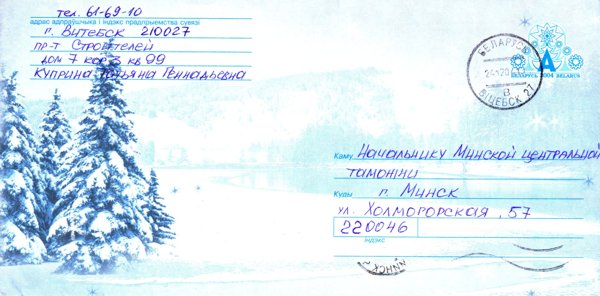 тел. 61-69-10
адрас адпраўшчыка і індэкс прадпрыемства сувязі
г. Витебск 210027
пр-т Строителей
дом 7 кор 3 кв 99
Куприна Татьяна Геннадьевна
БЕЛАРУСЬ
24 12 0
В
ВІЦЕБСК 27
А
БЕЛАРУСЬ 2004 BELARUS
Каму Начальнику Минской центральной
таможни
Куды г. Минск
ул. Холмогорская, 57
220046
індэкс
МІНСК